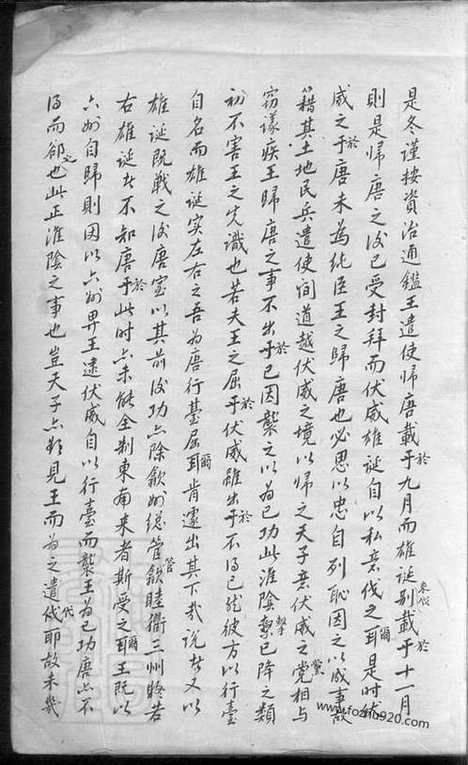 是冬謹按資治通鑑王遣使帰唐載于九月而雄誕别載于十一月
則是帰唐之後已受封拜而伏威雄誕自以私意伐之耳是时伏
威之于唐未為純臣王之帰唐也必思以忠自列恥因之以成事故
籍其土地民兵遣使间道越伏威之境以帰之天子并伏威之党相与
窃議疾王帰唐之事不出乎已因襲之以為已功此淮陰繫已降之類
初不害王之先識也若夫王之屈于伏威雖出于不得已然彼方以行臺
自名而雄诞实左右之吾為唐行臺屈耳肯遽出其下哉说者又以
雄诞既戰之後唐室以其前後功上除歙州総管歙睦衢三州将若
右雄诞者不知唐于此时上未能全制東南来者斯受之耳王既以
六州自帰則因以六州畀王逮伏威自以行臺而襲王為已功唐上不
得而卻也此正淮陰之事也豈天子上
見王而為之遣伐耶故未幾
於
東 於
於
爾
於
黨
擊
於
於
於
爾
管
於
爾
之
代
www.fozhu920.com